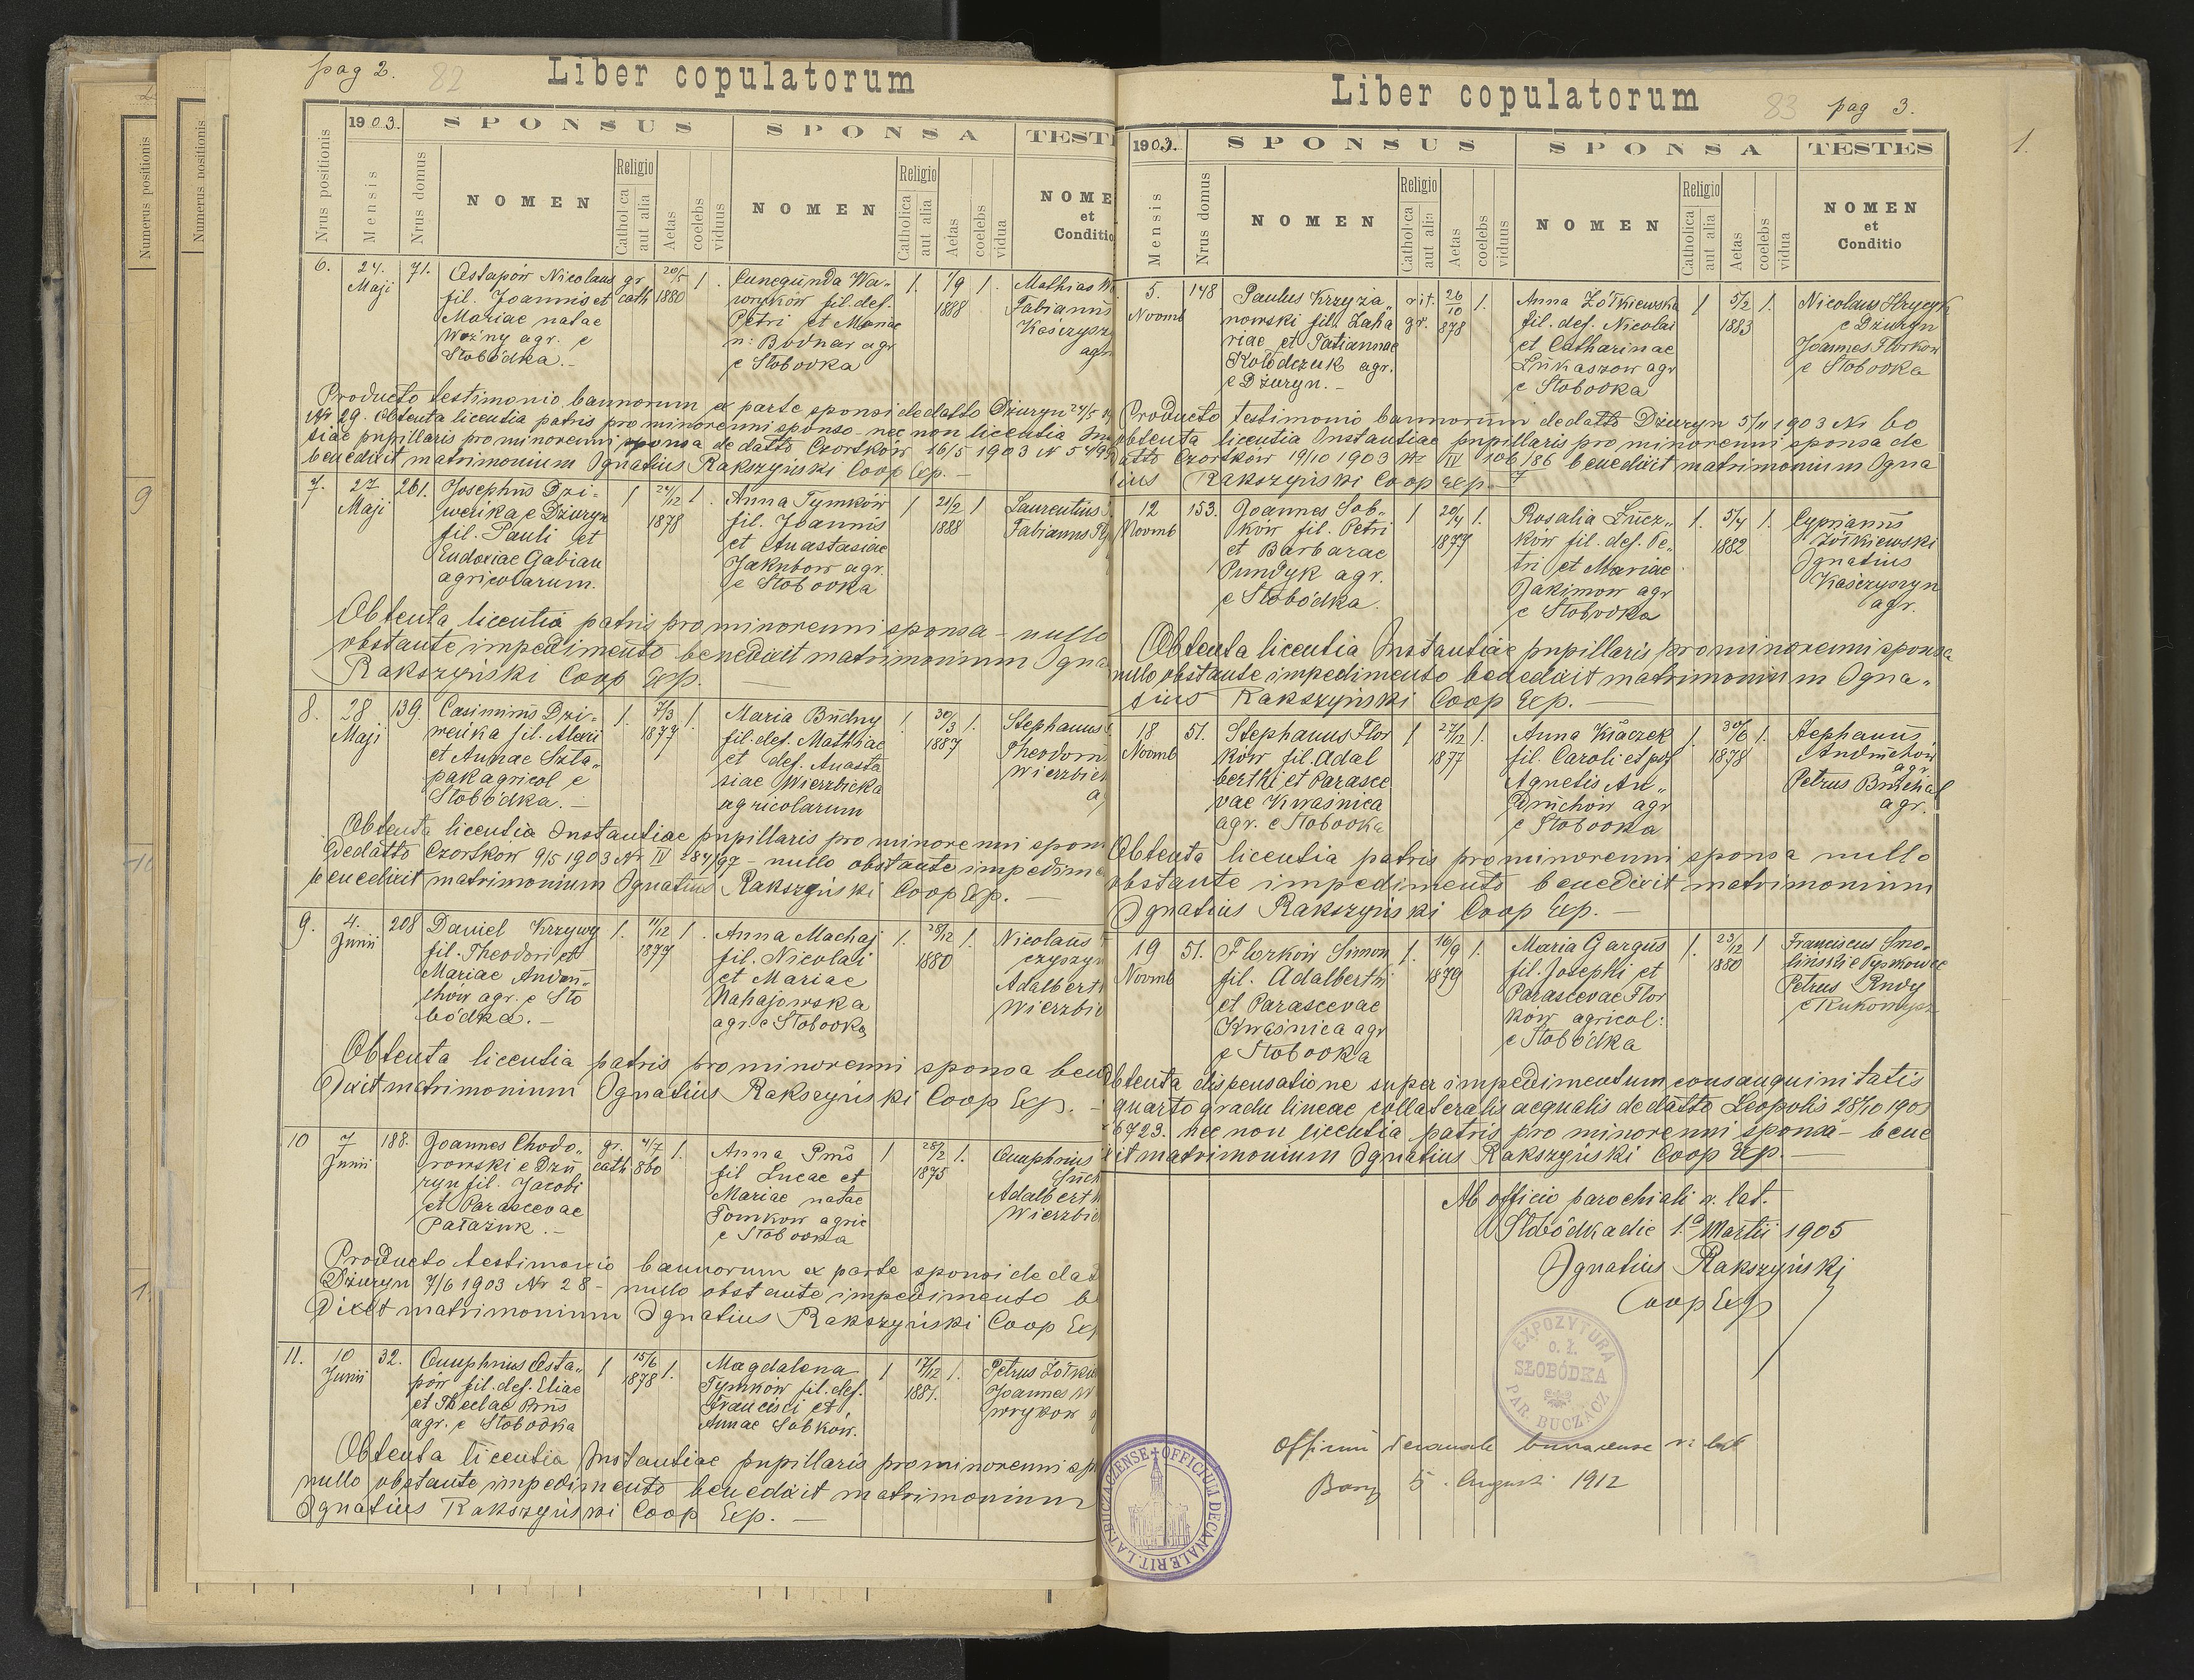 pag 2.
82
Liber copulatorum
Nrus positionis
1903.
Mensis
Nrus domus
SPONSUS
NOMEN
Religio
Catholica
aut alia
Aetas
coelebs
viduus
SPONSA
NOMEN
Religio
Catholica
aut alia
Aetas
coelebs
vidua
TESTE
NOME
et
Conditio
6.
24.
Maji
71.
Ostapów Nicolaus
fil. Joannis et
Mariae natae
Woźny agr. e
Słobódka.-
gr
cath
20/5
1880
1.
Cunegunda Wa-
wryków fil. def.
Petri et Mariae
n: Bodnar agr
e Słobodka
1.
1/9
1888
1.
Mathias
Fabianus
Kaśczysz
agr
Producto testimonio bannorum ex parte sponsi de datto Dżuryn 24/5
Nr 29. Obtenta licentia patris pro minorenni sponso - nec non licentia Ins
tiae pupillaris pro minorenni sponsa de datto Czortków 16/5 1903 N 5499
benedixit matrimonium Ignatius Rakszyński Coop Exp. -
7.
27
Maji
261.
Josephus Dzi-
weńka e Dżuryn
fil. Pauli et
Eudoxiae Gabian
agricolarum.
1
24/12
1878
1.
Anna Tymków
fil. Joannis
et Anastasiae
Jakubow agr.
e Słobodka
1
21/2
1888
1
Laurentius
Fabianus
Obtenta licentia patris pro minorenni sponsa - nullo
obstante impedimento benedixit matrimonium Igna
Rakszyński Coop Exp. -
8.
28
Maji
139.
Casimirus Dzi-
weńka fil. Alexi
et Annae Szta-
pak agricol e
Słobódka.-
1.
7/3
1877
1.
Maria Budny
fil. def. Mathiae
et def. Anasta
siae Wierzbicka
agricolarum
1.
30/3
1887
1.
Stephanus
Theodorus
Wierzbic
a
Obtenta licentia Instantiae pupillaris pro minorenni spon
de datto Czortków 9/5 1903 Nr IV 284/97 - nullo obstante impedime
benedixit matrimonium Ignatius Rakszyński Coop Exp. -
9.
4.
Junii
208
Daniel Krzywy
fil. Theodori et
Mariae Andru-
chów agr. e Sło
bódka.-
1.
11/12
1877
1.
Anna Machaj
fil. Nicolai
et Mariae
Nahajowska
agr. e Słobodka
1.
28/12
1880
1.
Nicolaus
czyszyn
Adalbert
Wierzbic
Obtenta licentia patris pro minorenni sponsa bene
dixit matrimonium Ignatius Rakszyński Coop Exp. -
10
7
Junii
188.
Joannes Chodo-
rowski e Dżu
ryn fil. Jacobi
et Parascevae
Pałażuk.-
gr.
cath
4/7
860
1.
Anna Prus
fil Lucae et
Mariae natae
Tomkow agric
e Słobodka
1
28/2
1875
1.
Onuphrius
Adalbert
Wierzbic
Producto testimonio bannorum ex parte sponsi de dat
Dżuryn 7/6 1903 Nr 28 - nullo obstante impedimento be
dixit matrimonium Ignatius Rakszyński Coop Exp
11.
10
Junii
32.
Onuphrius Osta-
pów fil. def. Eliae
et Theclae Prus
agr. e Słobodka
1
15/6
1878
1.
Magdalena
Tymków fil. def.
Francisci et
Annae Sobków.
1
17/12
1881.
1.
Petrus Żołkie
Joannes W
wrykow
Obtenta licentia Instantiae pupillaris pro minorenni sp
nullo obstante impedimento benedixit matrimonium
Ignatius Rakszyński Coop Exp. -
Liber copulatorum
83
pag 3.
1903.
Mensis
Nrus domus
SPONSUS
NOMEN
Religio
Catholica
aut alia
Aetas
coelebs
viduus
SPONSA
NOMEN
Religio
Catholica
aut alia
Aetas
coelebs
vidua
TESTES
NOMEN
et
Conditio
1.
5.
Novmb
148
Paulus Krzyża-
nowski fil. Zaha
riae et Tatiannae
Kołodczuk agr.
e Dżuryn.-
rit.
gr.
26/10
878
1.
Anna Żółkiewska
fil. def. Nicolai
et Catharinae
Łukaszow agr
e Słobodka
1
5/2
1883
1.
Nicolaus Hrycyk
e Dżuryn
Joannes Florkow
e Słobodka
Producto testimonio bannorum de datto Dżuryn 5/11 1903 Nr 60
obtenta licentia Instantiae pupillaris pro minorenni sponsa de
datto Czortków 19/10 1903 Nr IV 106/86 benedixit matrimonium Igna
tius Rakszyński Coop Exp.
12
Novmb
153.
Joannes Sob-
ków fil. Petri
et Barbarae
Pundyk agr.
e Słobódka.
1
20/4
1877
1.
Rosalia Łucz-
ków fil. def. Pe-
tri et Mariae
Jakimow agr
e Słobodka
1.
5/4
1882
1.
Cyprianus
Żołkiewski
Ignatius
Kaśczyszyn
agr.
Obtenta licentia Instantiae pupillaris pro minorenni sponsa
nullo obstante impedimento benedixit matrimonium Igna-
tius Rakszyński Coop Exp. -
18
Novmb
51.
Stephanus Flor
ków fil. Adal
berthi et Parasce
vae Kwaśnica
agr. e Słobodka
1
27/12
1877
1.
Anna Kłaczek
fil. Caroli et
Agnetis An-
druchów agr
e Słobodka
1.
30/6
1878
1.
Stephanus
Andruchow
agr.
Petrus Bruchal
agr.
Obtenta licentia patris pro minorenni sponsa nullo
obstante impedimento benedixit matrimonium
Ignatius Rakszyński Coop Exp. -
19
Novmb
51.
Florków Simon
fil. Adalberthi
et Parascevae
Kwaśnica agr
e Słobodka
1.
16/9
1879
1.
Maria Gargus
fil. Josephi et
Parascevae Flor
ków agricol:
e Słobódka
1.
23/12
1880
1
Franciscus Smo-
liński e Pyszkowce
Petrus Rudy
Obtenta dispensatione super impedimentum consanguinitatis
quarto gradu lineae collateralis aequalis de datto Leopolis 28/10 1903
6723. nec non licentia patris pro minorenni sponsa - bene
dixit matrimonium Ignatius Rakszyński Coop Exp. -
Ab officio parochiali r. lat.
Słobódka die 1ª Martii 1905
Ignatius Rakszyński
Coop Exp
EXPOZYTURA
o. ł.
SŁOBÓDKA
PAR. BUCZACZ
Officium decanale buczacense r. lat
5 Augusti 1912
OFFICIUM DECANALE RIT. LAT. BUCZACZENSE
Numerus positionis
Numerus positionis
9